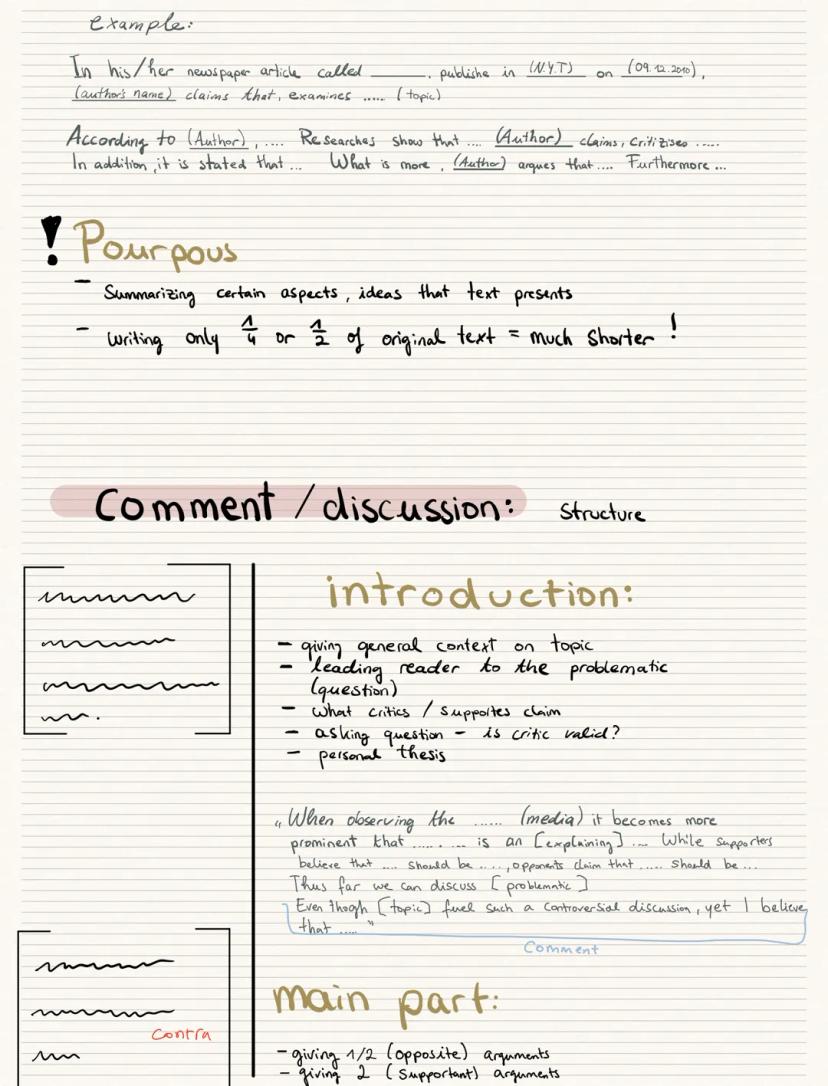 example:
In his/her newspaper article called ______, publishe in (N.Y.T) on (09.12.2010),
(author's name) claims that, examines ..... (topic)
According to (Author), .... Researches show that .... (Author) claims, critizises .....
In addition, it is stated that ... What is more, (Author) argues that .... Furthermore ...
! Pourpous
- Summarizing certain aspects, ideas that text presents
- writing only 1/4 or 1/2 of original text = much shorter !
Comment / discussion: Structure
introduction:
- giving general context on topic
- leading reader to the problematic
(question)
- what critics / supportes claim
- asking question - is critic valid?
- personal thesis
„When observing the ...... (media) it becomes more
prominent that ......... is an [explaining] ... While supporters
believe that .... should be ...., opponents claim that ..... should be ...
Thus far we can discuss [problematic]
Even thogh [topic] fuel such a controversial discussion, yet I believe
that ....."
Comment
main part:
Contra
- giving 1/2 (opposite) arguments
- giving 2 (supportant) arguments